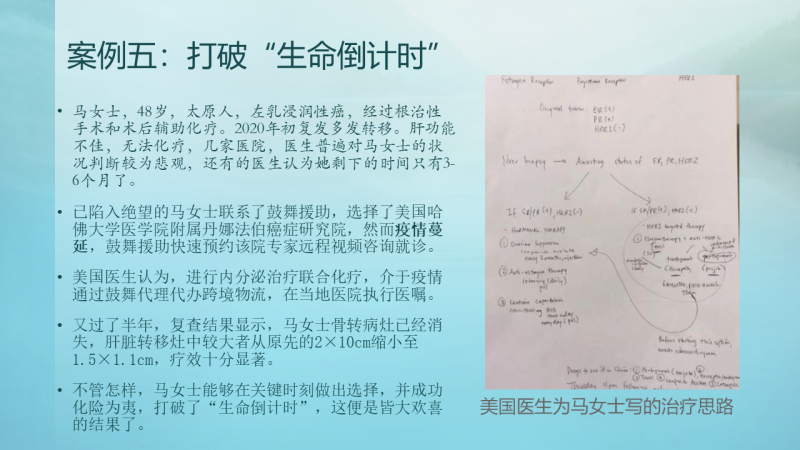 案例五：打破“生命倒计时”
• 马女士，48岁，太原人，左乳浸润性癌，经过根治性
手术和术后辅助化疗。2020年初复发多发转移。肝功能
不佳，无法化疗，几家医院，医生普遍对马女士的状
况判断较为悲观，还有的医生认为她剩下的时间只有3-
6个月了。
• 已陷入绝望的马女士联系了鼓舞援助，选择了美国哈
佛大学医学院附属丹娜法伯癌症研究院，然而疫情蔓
延，鼓舞援助快速预约该院专家远程视频咨询就诊。
• 美国医生认为，进行内分泌治疗联合化疗，介于疫情
通过鼓舞代理代办跨境物流，在当地医院执行医嘱。
• 又过了半年，复查结果显示，马女士骨转病灶已经消
失，肝脏转移灶中较大者从原先的2×10cm缩小至
1.5×1.1cm，疗效十分显著。
• 不管怎样，马女士能够在关键时刻做出选择，并成功
化险为夷，打破了“生命倒计时”，这便是皆大欢喜
的结果了。
Estrogen Receptor Progesterone Receptor HER2
Original tumor: ER(+)
PR(+)
HER2(-)
liver biopsy → Awaiting status of ER, PR, HER2
If ER/PR(+), HER2(-)
- HORMONAL THERAPY
① Ovarian suppression
② Anti-estrogen therapy
(daily)
③
If ER/PR(+), HER2(+)
- HER2 targeted therapy
① Chemotherapy + anti-HER2
Before starting this option,
Drugs to see if in China:
美国医生为马女士写的治疗思路